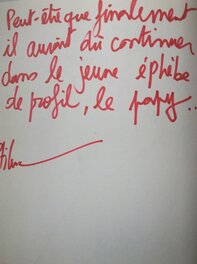 Peut-être que finalement
il aurait dû continuer
dans le jeune éphèbe
de profil, le papy...